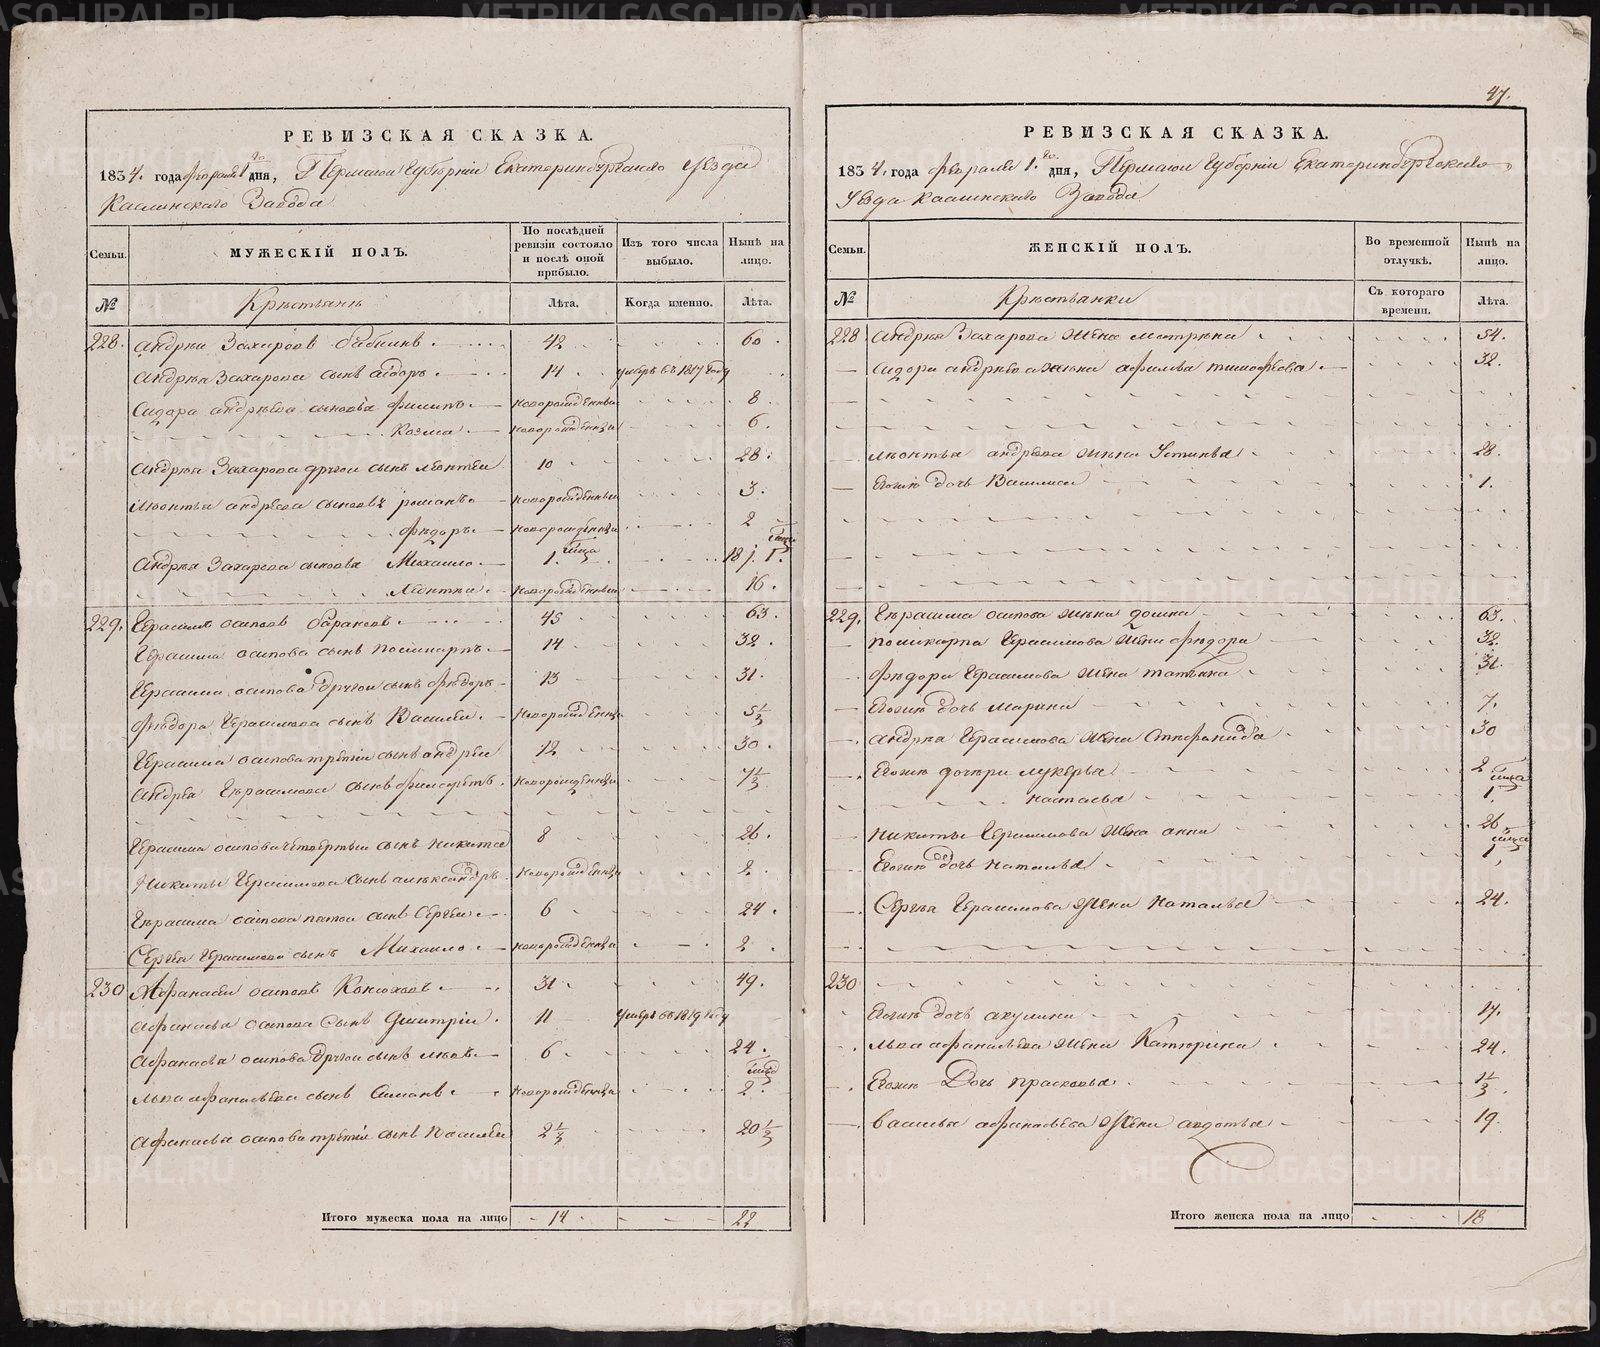 47.
РЕВИЗСКАЯ СКАЗКА.
1834. года февраля 1го дня, Пермской Губернiи Екатеринбургскаго Уезда
Каслинскаго Завода
Семьи.
МУЖЕСКIЙ ПОЛЪ.
По послѣдней ревизiи состояло и послѣ оной прибыло.
Изъ того числа выбыло.
Нынѣ на лицо.
№
Крестьянъ
Лѣта.
Когда именно.
Лѣта.
228. Андрей Захаровъ 42 60.
Андрея Захарова сынъ Сидоръ 14 умеръ въ 1817 году
Сидора Андрѣева сыновья Филипъ новорожденны 8
Козма новорожденны 6.
Андрея Захарова другой сынъ Леонтей 10 28.
Леонтья Андреева сыновья Романъ новорожденны 3.
Федоръ новорожденны 2
Андрея Захарова сыновья Михайло 1. мца 18 1.
новорожденны 16.
229. Герасимъ Осиповъ Барановъ 45 63.
Герасима Осипова сынъ Поликарпъ 14 32.
Герасима Осипова другой сынъ Федоръ 13 31.
Федора Герасимова сынъ Василей новорожденны 5½
Герасима Осипова третiй сынъ Андрей 12 30.
Андрея Герасимова сынъ новорожденны 7½
Герасима Осипова четвертый сынъ Никита 8 26.
Никиты Герасимова сынъ Александръ новорожденны 2.
Герасима Осипова пятой сынъ Сергей 6 24.
Сергея Герасимова сынъ Михайло новорожденны 2.
230 Афанасей Осиповъ Конюховъ 31. 49.
Афанасья Осипова сынъ Дмитрiй 11 умеръ въ 1819 году
Афанасья Осипова другой сынъ Левъ 6 24.
Льва Афанасьева сынъ новорожденны 2.
Афанасья Осипова третiй сынъ Василей 2½ 20½
Итого мужеска пола на лицо 14 22
РЕВИЗСКАЯ СКАЗКА.
1834. года февраля 1.го дня, Пермской Губернiи Екатеринбургскаго
Уезда Каслинскаго Завода
Семьи.
ЖЕНСКIЙ ПОЛЪ.
Во временной отлучкѣ.
Нынѣ на лицо.
№
Крестьянки
Съ котораго времени.
Лѣта.
228 Андрея Захарова жена Матрена 54.
Сидора Андрѣева жена Афимья Тимофеева 32.
Леонтья Андреева жена Устинья 28.
Евоже дочь Василиса 1.
229. Герасима Осипова жена Домна 63.
Поликарпа Герасимова жена Федора 32.
Федора Герасимова жена Татьяна 31.
Евоже дочь Марина 7.
Андрея Герасимова жена Степанида 30
Евоже дочери Лукерья 2
Настасья 1.
Никиты Герасимова жена Анна 26
Евоже дочь Наталья 1
Сергея Герасимова жена Наталья 24.
230
Евоже дочь Акулина 17.
Льва Афанасьева жена Катерина 24.
Евоже Дочь Прасковья 1½
Василья Афанасьева жена Авдотья 19.
Итого женска пола на лицо 18
METRIKI.GASO-URAL.RU